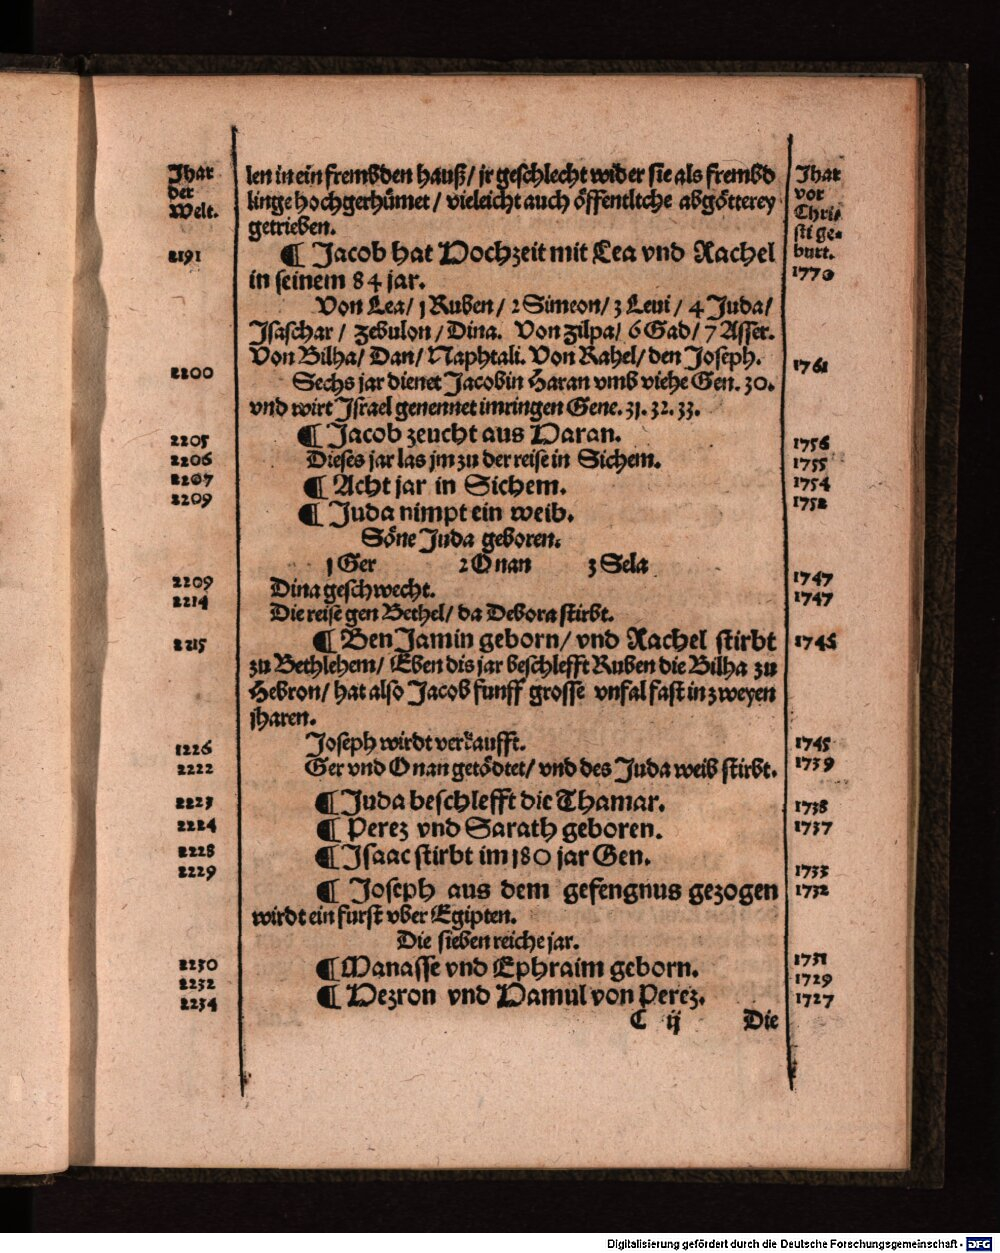 Jhar
der
Welt.
Jhar
vor
Chri⸗
sti ge⸗
burt.
len in ein frembden hauß/ jr geschlecht wider sie als frembd
linge hochgerhümet/ vieleicht auch öffentltche abgötterey
getrieben.
2191 ¶ Jacob hat Hochzeit mit Lea vnd Rachel 1770
in seinem 84 jar.
Von Lea/ 1 Ruben/ 2 Simeon/ 3 Leui/ 4 Juda/
Isaschar/ Zebulon/ Dina. Von Zilpa/ 6 Gad/ 7 Asser.
Von Bilha/ Dan/ Naphtali. Von Rahel/ den Joseph. 1761
2200 Sechs jar dienet Jacob in Haran vmb viehe Gen. 30.
vnd wirt Jsrael genennet im ringen Gene. 31. 32. 33.
2205 ¶ Jacob zeucht aus Haran. 1756
2206 Dieses jar las jm zu der reise in Sichem. 1755
2207 ¶ Acht jar in Sichem. 1754
2209 ¶ Juda nimpt ein weib. 1752
Söne Juda geboren.
1 Ger 2 Onan 3 Sela
2209 Dina geschwecht. 1747
2214 Die reise gen Bethel/ da Debora stirbt. 1747
2215 ¶ BenJamin geborn/ vnd Rachel stirbt 1746
zu Bethlehem/ Eben dis jar beschlefft Ruben die Bilha zu
Hebron/ hat also Jacob funff grosse vnfal fast in zweyen
jharen.
1226 Joseph wirdt verkaufft. 1745
2222 Ger vnd Onan getödtet/ vnd des Juda weib stirbt. 1739
2223 ¶ Juda beschlefft die Thamar. 1738
2224 ¶ Perez vnd Sarath geboren. 1737
2228 ¶ Isaac stirbt im 180 jar Gen. 1733
2229 ¶ Joseph aus dem gefengnus gezogen 1732
wirdt ein furst vber Egipten.
Die sieben reiche jar.
2230 ¶ Manasse vnd Ephraim geborn. 1731
2232 1729
2234 ¶ Hezron vnd Hamul von Perez. 1727
C ij Die
Digitalisierung gefördert durch die Deutsche Forschungsgemeinschaft - DFG